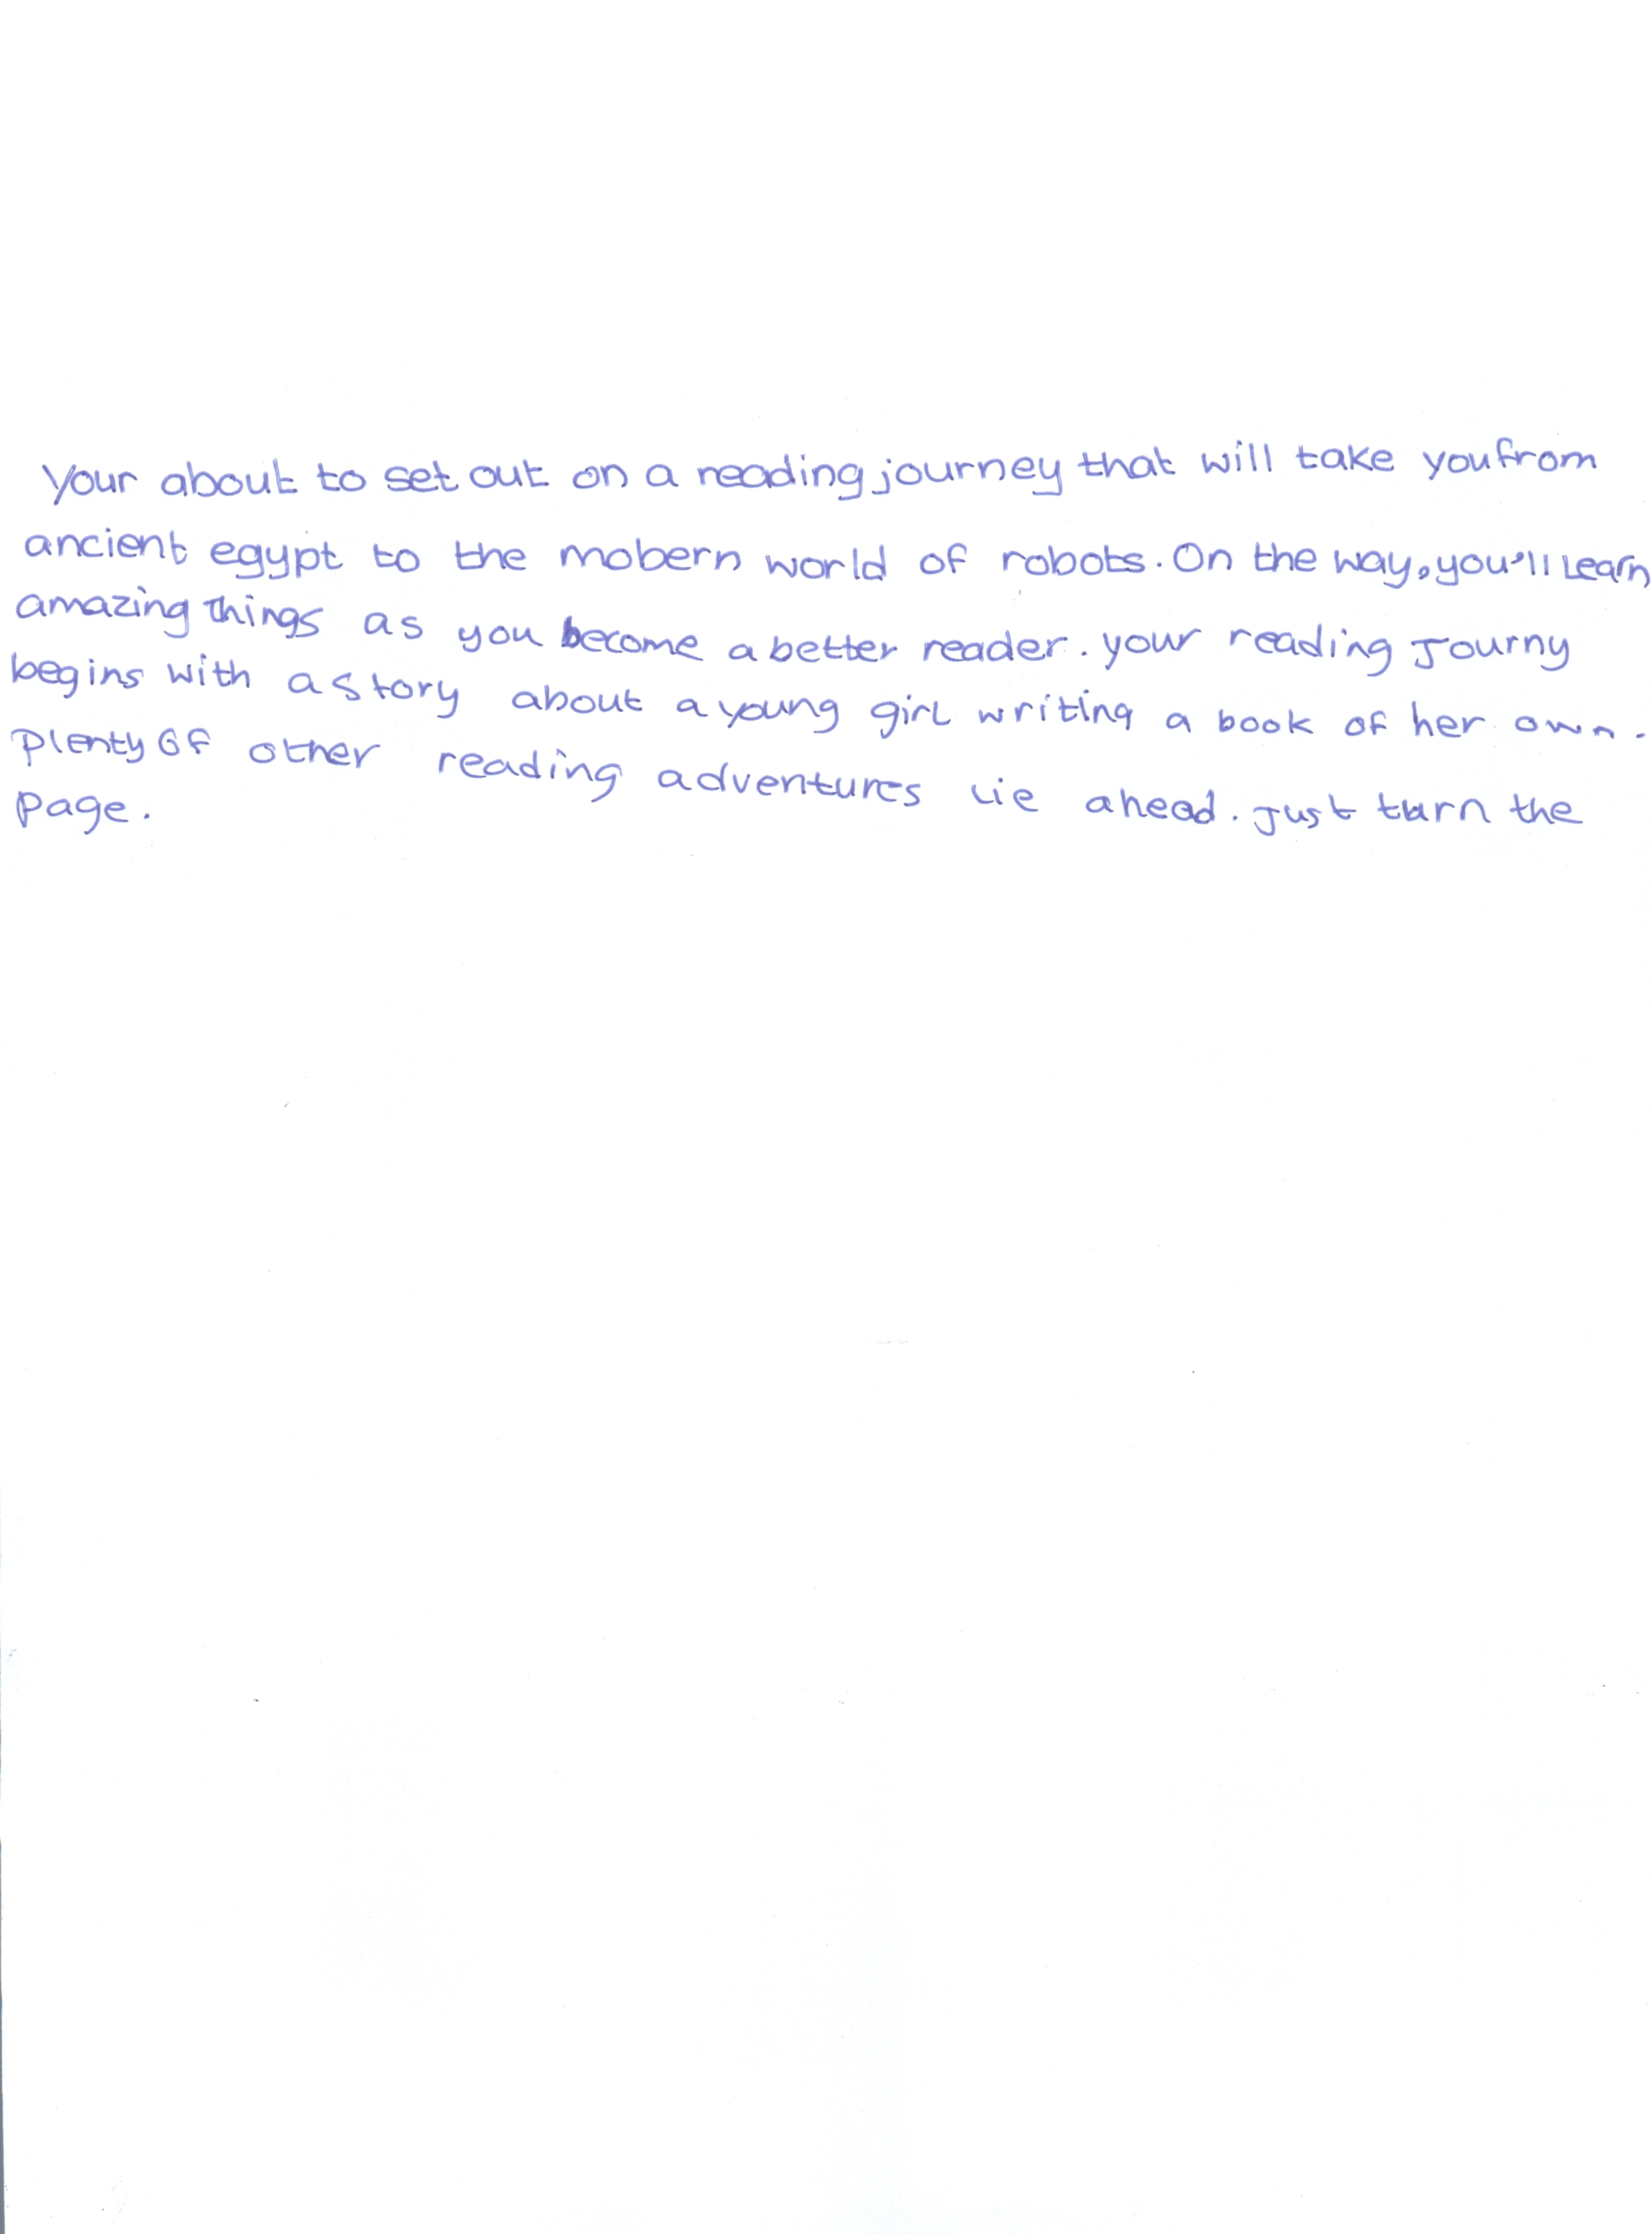 Your about to set out on a reading journey that will take you from
ancient egypt to the mobern world of robots. On the way, you'll Learn
amazing things as you become a better reader. your reading Journy
begins with a story about a young girl writing a book of her own.
Plenty of other reading adventures lie ahead. Just turn the
page.